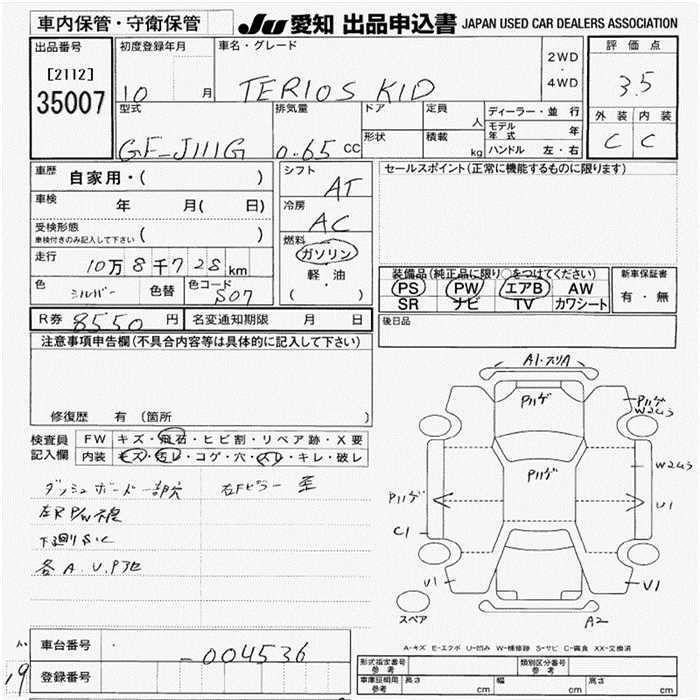 車内保管・守衛保管 JU 愛知 出品申込書 JAPAN USED CAR DEALERS ASSOCIATION
出品番号
[2112]
35007
初度登録年月
10 月
車名・グレード
TERIOS KID
2WD
・
4WD
評価点
3.5
外装 内装
C C
型式
GF-J111G
排気量
0.65 CC
ドア
形状
定員
人
積載
kg
ディーラー・並行
モデル年式 年
ハンドル 左・右
車歴 自家用・( )
車検 年 月( 日)
受検形態
車検付きのみ記入して下さい ( )
走行 10万8千728 km
色 シルバー 色替 色コード S07
シフト AT
冷房 AC
燃料
ガソリン
軽・油
( ・ )
セールスポイント(正常に機能するものに限ります)
装備品(純正品に限り○をつけてください)
PS PW エアB AW
SR ナビ TV カワシート
新車保証書
有・無
R券 8550 円 名変通知期限 月 日
後日品
注意事項申告欄(不具合内容等は具体的に記入して下さい)
修復歴 有(箇所 )
検査員 FW キズ・飛石・ヒビ割・リペア跡・X要
記入欄 内装 キズ・汚レ・コゲ・穴・スレ・キレ・破レ
ダッシュボード一部穴 右Fピラー
左R P/W不良
下廻りS・C
各A.U.P
A1・スリA
Pハゲ
Pハゲ
W2ムラ
Pハゲ
W2ムラ
Pハゲ
U1
C1
U1
U1
スペア
A2
A-キズ E-エクボ U-凹み W-補修跡 S-サビ C-腐食 XX-交換済
車台番号 -004536
登録番号
19
形式指定番号
参考
類別区分番号
参考
車庫証明用
参考
長さ cm 幅 cm 高さ cm